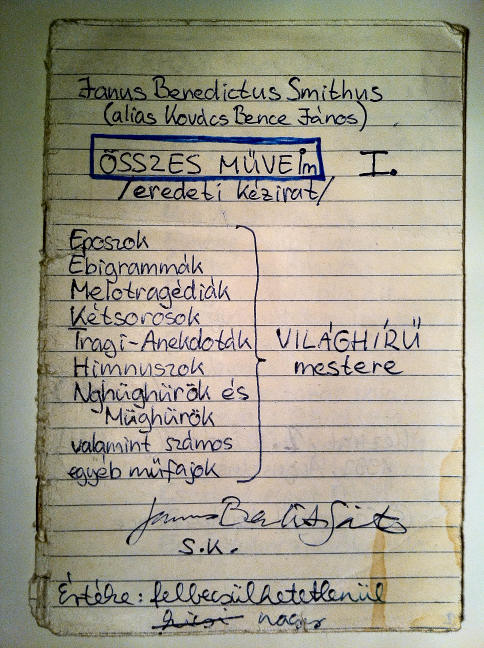 Janus Benedictus Smithus
(alias Kovács Bence János)
ÖSSZES MŰVEIm I.
/eredeti kézirat/
Eposzok
Ebigrammák
Melotragédiák
Kétsorosok
Tragi-Anekdoták
Himnuszok
Nghüghürök és
Müghürök
valamint számos
egyéb műfajok
VILÁGHÍRŰ
mestere
s.k.
Értéke: felbecsülhetetlenül
kicsi nagy